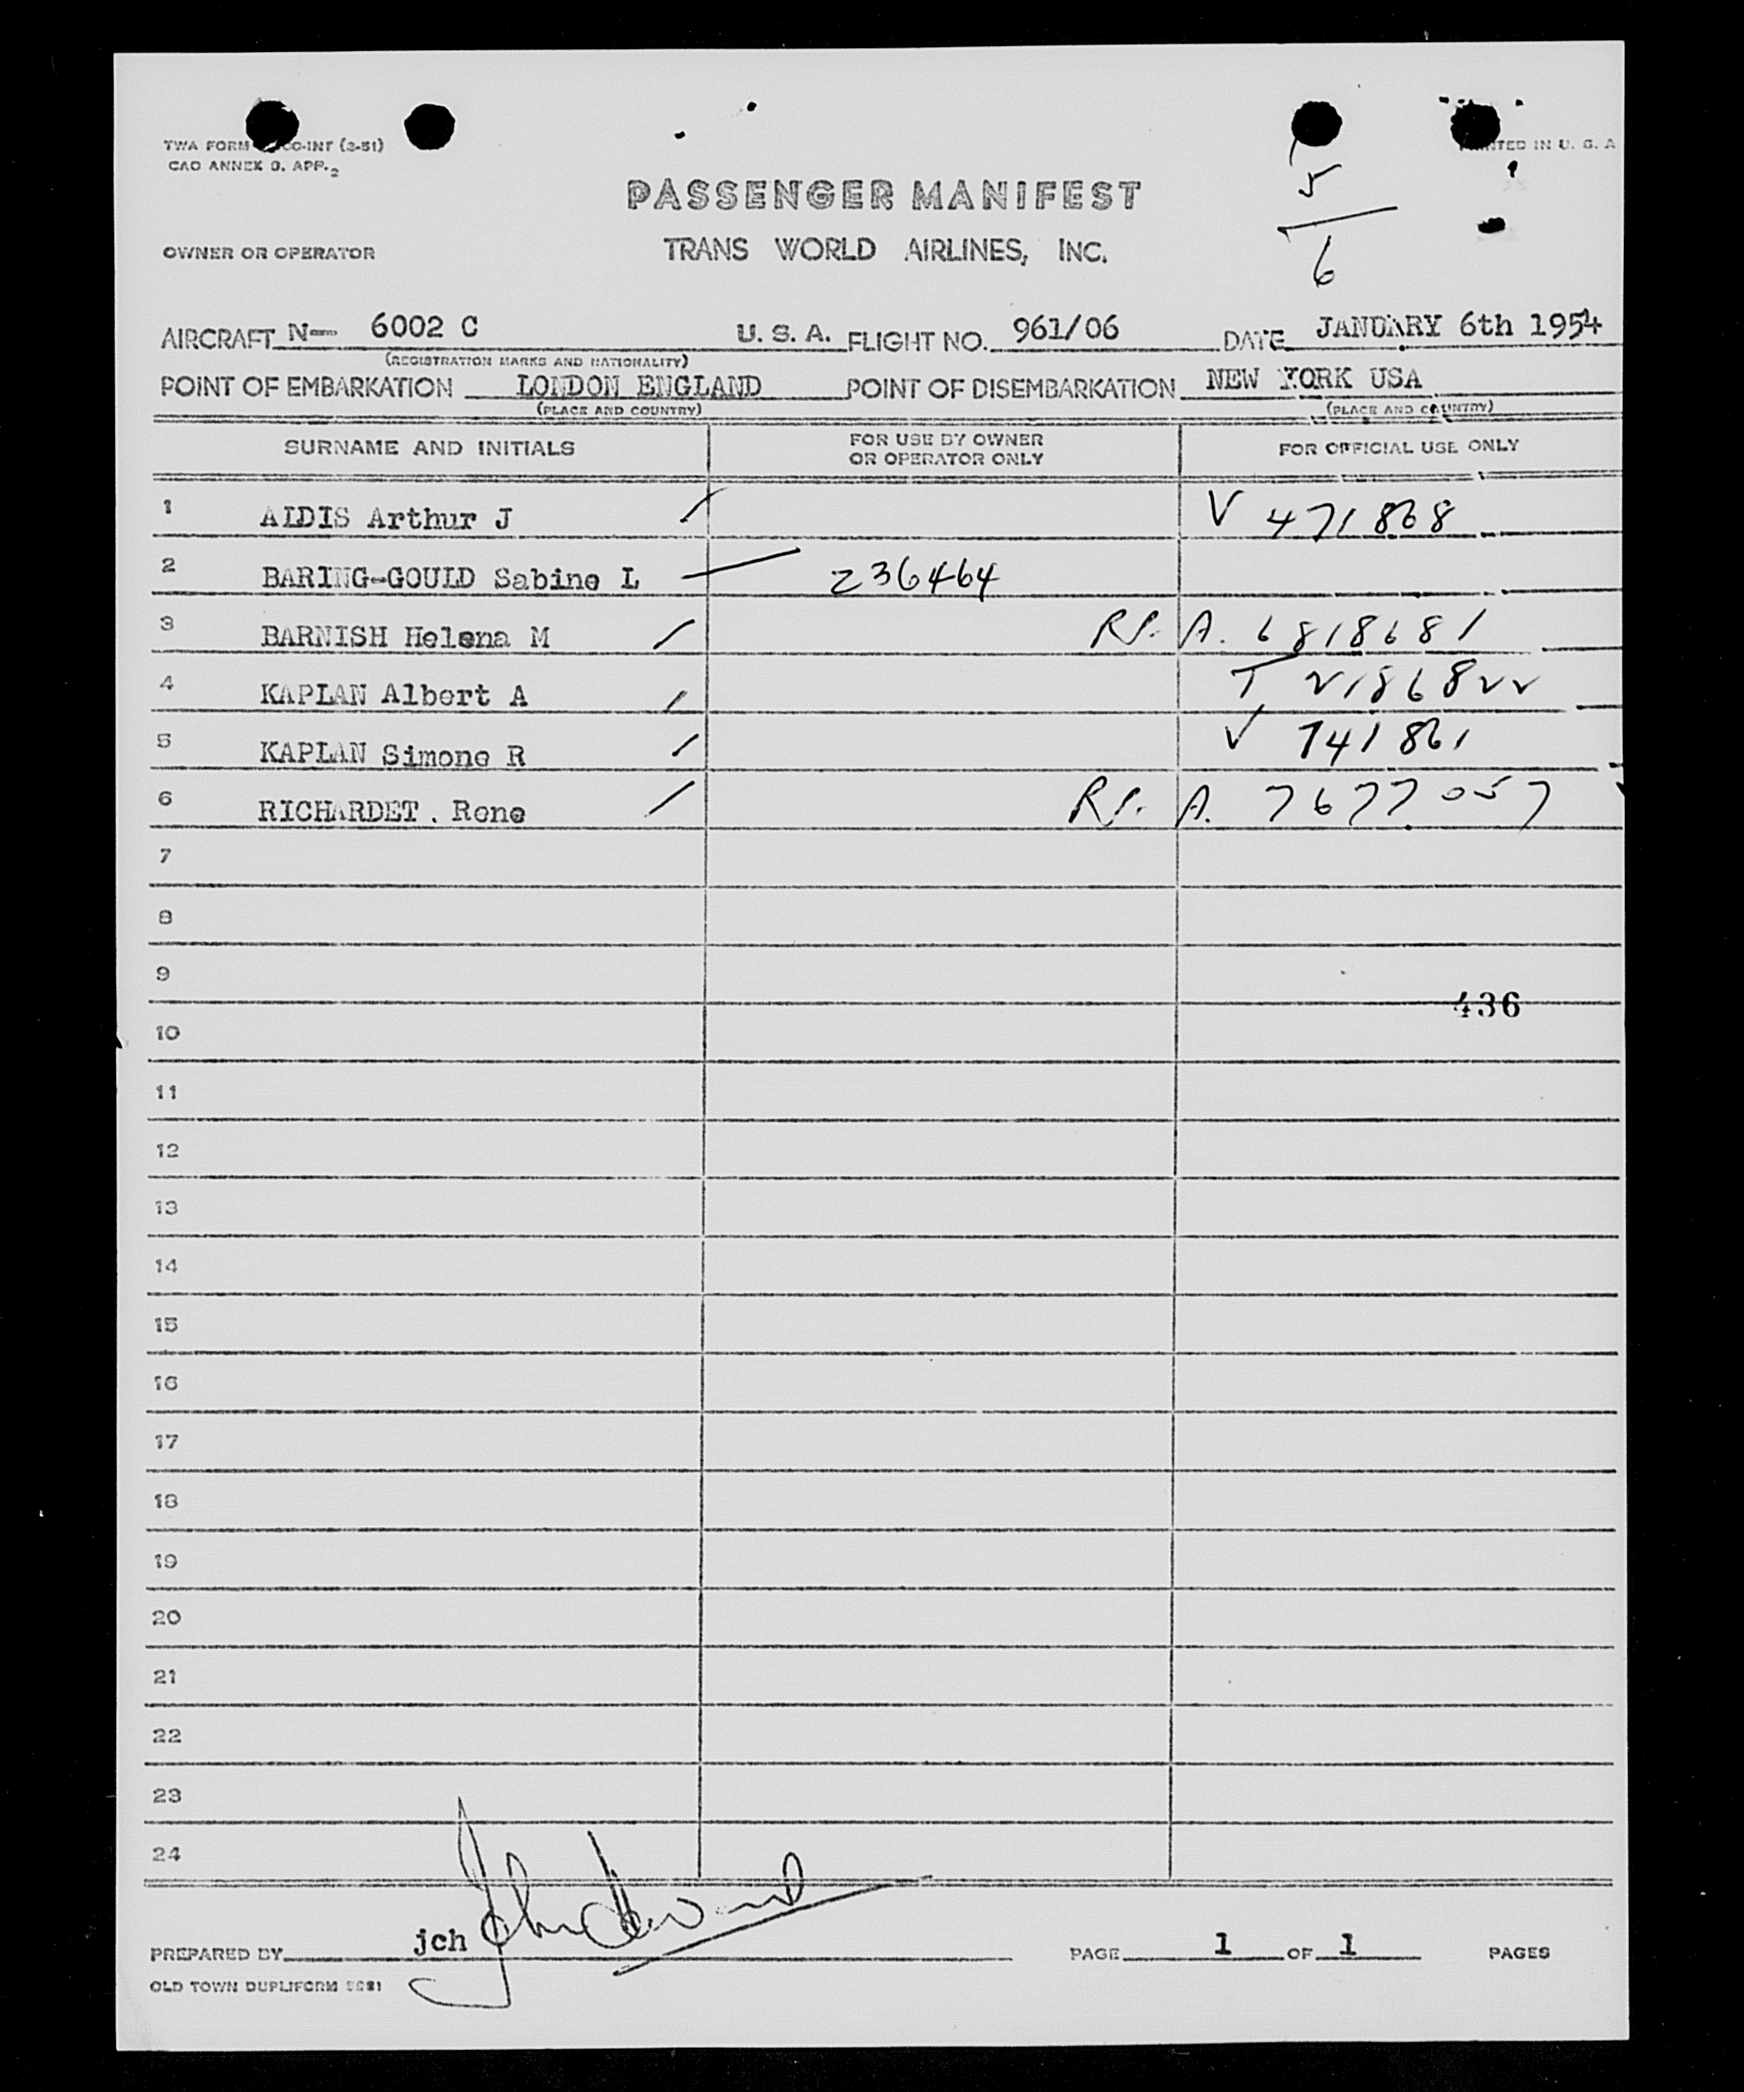 TWA FORM CO-INT (2-51)
CAO ANNEX 9. APP. 2
PRINTED IN U. S. A
PASSENGER MANIFEST
5
6
OWNER OR OPERATOR
TRANS WORLD AIRLINES, INC.
AIRCRAFT N— 6002 C U. S. A. FLIGHT NO. 961/06 DATE JANUARY 6th 1954
(REGISTRATION MARKS AND NATIONALITY)
POINT OF EMBARKATION LONDON ENGLAND POINT OF DISEMBARKATION NEW YORK USA
(PLACE AND COUNTRY) (PLACE AND COUNTRY)
SURNAME AND INITIALS FOR USE BY OWNER OR OPERATOR ONLY FOR OFFICIAL USE ONLY
1 ALDIS Arthur J / V 471868
2 BARING-GOULD Sabine L — 236464
3 BARNISH Helena M / A. 6818681
4 KAPLAN Albert A /
5 KAPLAN Simone R / V 741861
6 RICHARDET. Rene / A. 7677057
7
8
9
436
10
11
12
13
14
15
16
17
18
19
20
21
22
23
24
PREPARED BY jch PAGE 1 OF 1 PAGES
OLD TOWN DUPLIFORM